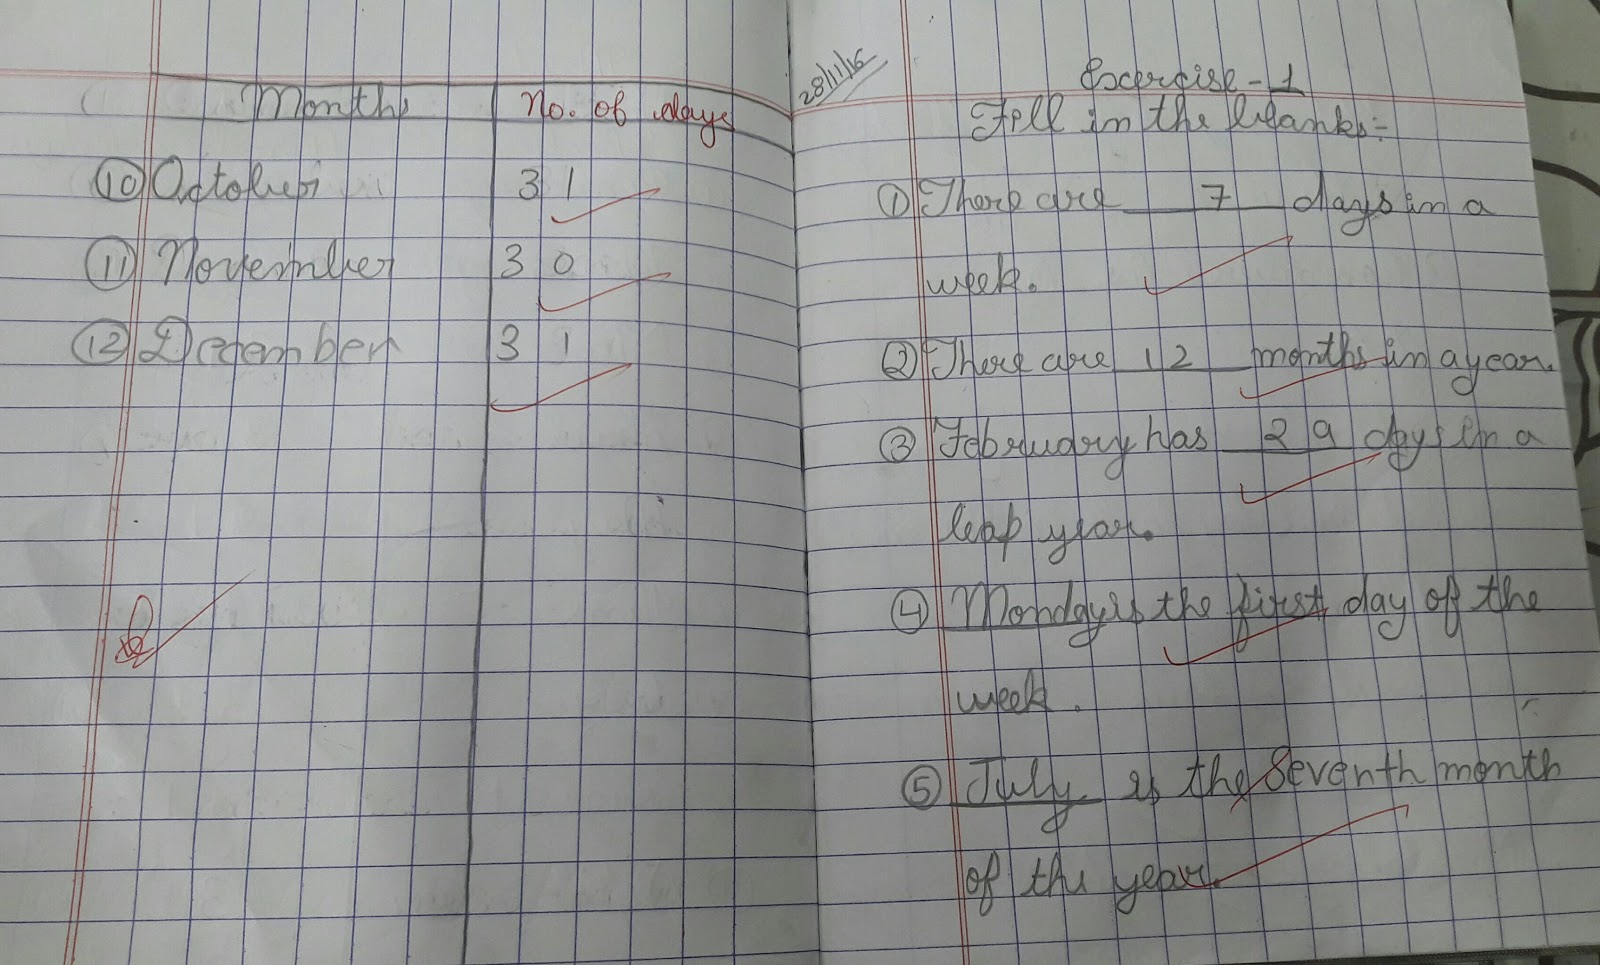 Months No. of days
10 October 31
11 November 30
12 December 31
28/11/16
Exercise-1
Fill in the blanks:-
1 There are 7 days in a
week.
2 There are 12 months in a year.
3 February has 29 days in a
leap year.
4 Monday is the first day of the
week.
5 July is the Seventh month
of the year.